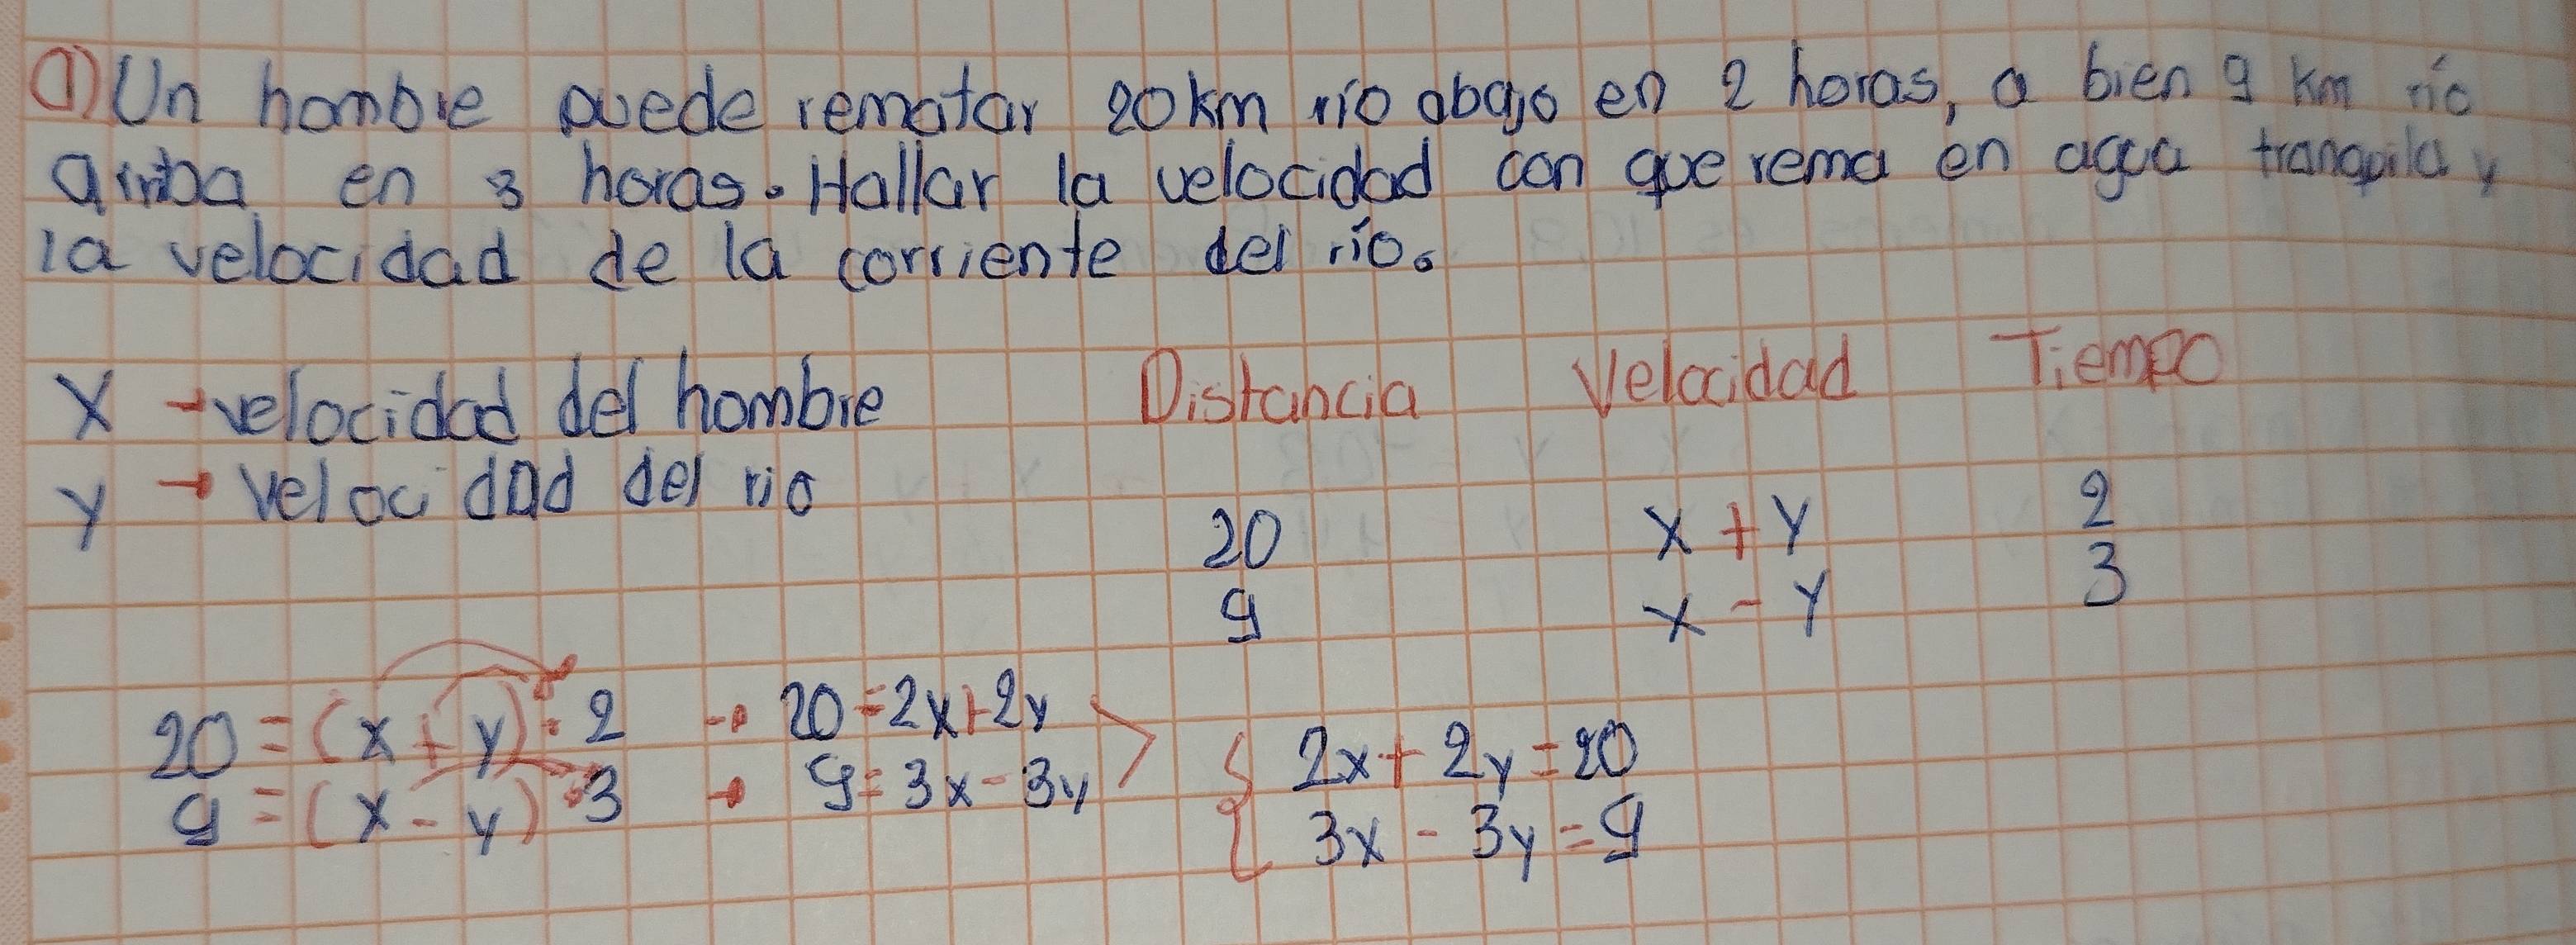 ① Un hombre puede rematar 20 km río abajo en 2 horas, a bien 9 km río
arriba en 3 horas. Hallar la velocidad con que rema en agua tranquila y
la velocidad de la corriente del río.
X → velocidad del hombre
y → velocidad del rio
Distancia Velocidad Tiempo
20 x + y 2
9 x - y 3
20 = (x + y) · 2 → 20 = 2x + 2y
9 = (x - y) · 3 → 9 = 3x - 3y
{ 2x + 2y = 20
3x - 3y = 9